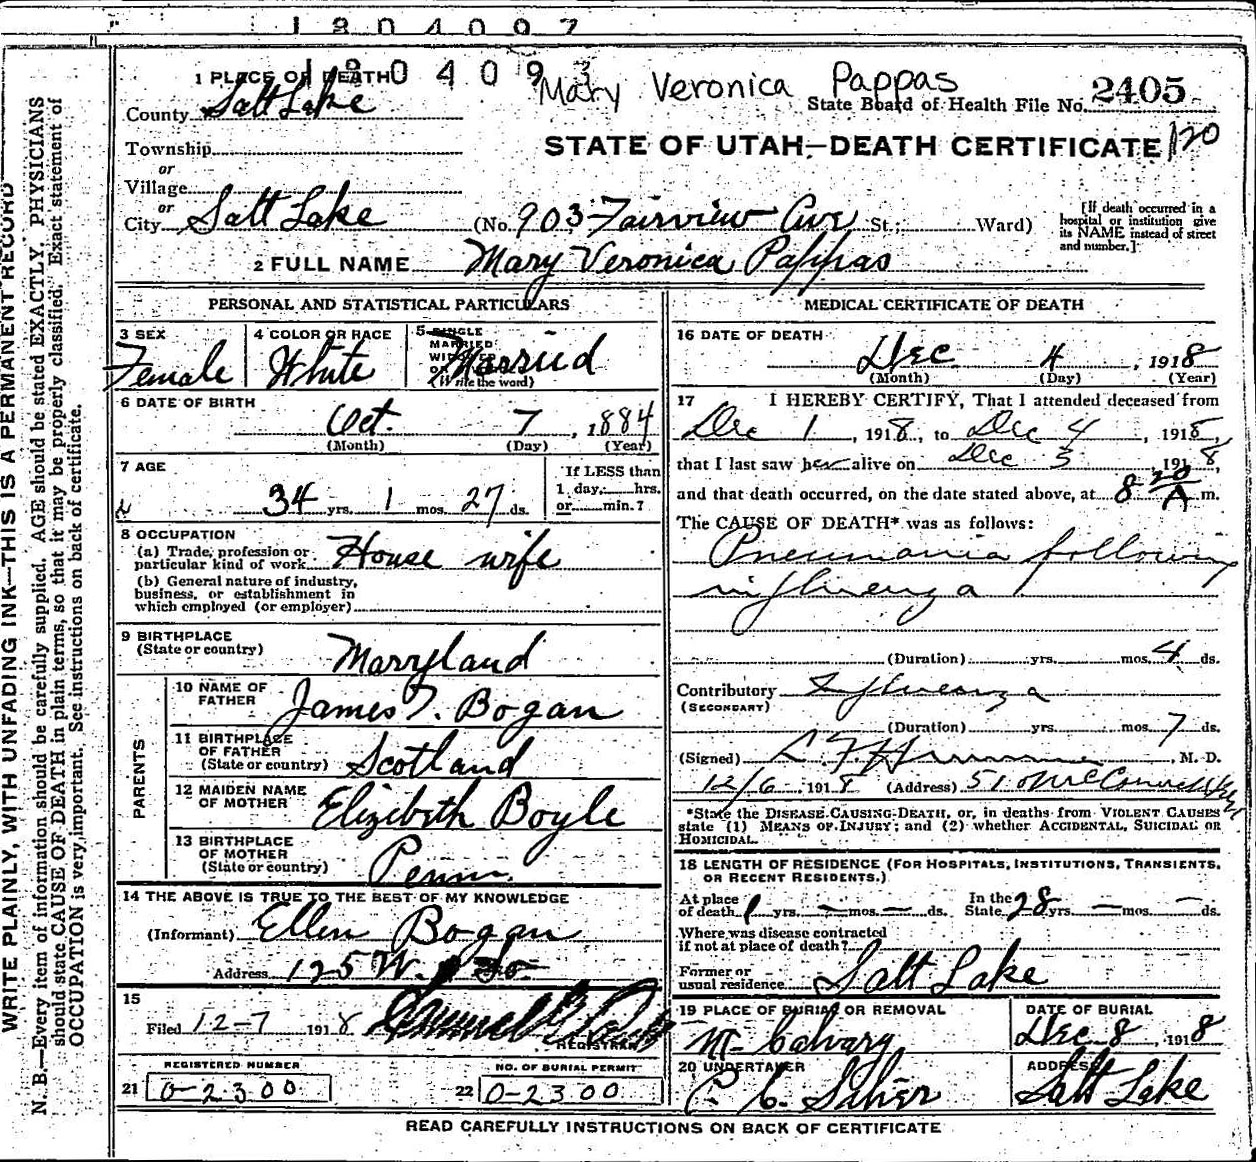 1804097
180409
Mary Veronica Pappas
1 PLACE OF DEATH
State Board of Health File No. 2405
County Salt Lake
STATE OF UTAH—DEATH CERTIFICATE 120
Township
or
Village
or
City Salt Lake (No. 903 Fairview Ave St.; Ward)
[If death occurred in a hospital or institution give its NAME instead of street and number.]
2 FULL NAME Mary Veronica Pappas
PERSONAL AND STATISTICAL PARTICULARS
3 SEX Female
4 COLOR OR RACE White
5 SINGLE MARRIED WIDOWED OR (Write the word) Married
6 DATE OF BIRTH
Oct. 7, 1884
(Month) (Day) (Year)
7 AGE
34 yrs. 1 mos. 27 ds.
If LESS than 1 day, hrs. or min.?
8 OCCUPATION
(a) Trade, profession or particular kind of work House wife
(b) General nature of industry, business, or establishment in which employed (or employer)
9 BIRTHPLACE
(State or country) Marryland
PARENTS
10 NAME OF FATHER James T. Bogan
11 BIRTHPLACE OF FATHER (State or country) Scotland
12 MAIDEN NAME OF MOTHER Elizibeth Boyle
13 BIRTHPLACE OF MOTHER (State or country) Penn.
14 THE ABOVE IS TRUE TO THE BEST OF MY KNOWLEDGE
(Informant) Ellen Bogan
Address 125 W. So.
15
Filed 12-7 1918
REGISTRAR
REGISTERED NUMBER
21 0-2300
NO. OF BURIAL PERMIT
22 0-2300
MEDICAL CERTIFICATE OF DEATH
16 DATE OF DEATH
Dec. 4, 1918
(Month) (Day) (Year)
17 I HEREBY CERTIFY, That I attended deceased from
Dec 1, 1918, to Dec 4, 1918,
that I last saw her alive on Dec 3 1918,
and that death occurred, on the date stated above, at 8 20 A m.
The CAUSE OF DEATH* was as follows:
Pneumania following
influenza
(Duration) yrs. mos. 4 ds.
Contributory Influenza
(SECONDARY)
(Duration) yrs. mos. 7 ds.
(Signed) M. D.
12/6 1918 (Address) 510 McCornick
*State the DISEASE CAUSING DEATH, or, in deaths from VIOLENT CAUSES
state (1) MEANS OF INJURY; and (2) whether ACCIDENTAL, SUICIDAL OR
HOMICIDAL.
18 LENGTH OF RESIDENCE (FOR HOSPITALS, INSTITUTIONS, TRANSIENTS,
OR RECENT RESIDENTS.)
At place of death 1 yrs. — mos. — ds. In the State 28 yrs. — mos. — ds.
Where was disease contracted
if not at place of death?
Former or usual residence Salt Lake
19 PLACE OF BURIAL OR REMOVAL
Mt Calvary
DATE OF BURIAL
Dec 8, 1918
20 UNDERTAKER
ADDRESS
Salt Lake
READ CAREFULLY INSTRUCTIONS ON BACK OF CERTIFICATE
WRITE PLAINLY, WITH UNFADING INK—THIS IS A PERMANENT RECORD
N. B.—Every item of information should be carefully supplied. AGE should be stated EXACTLY. PHYSICIANS
should state CAUSE OF DEATH in plain terms, so that it may be properly classified. Exact statement of
OCCUPATION is very important. See instructions on back of certificate.